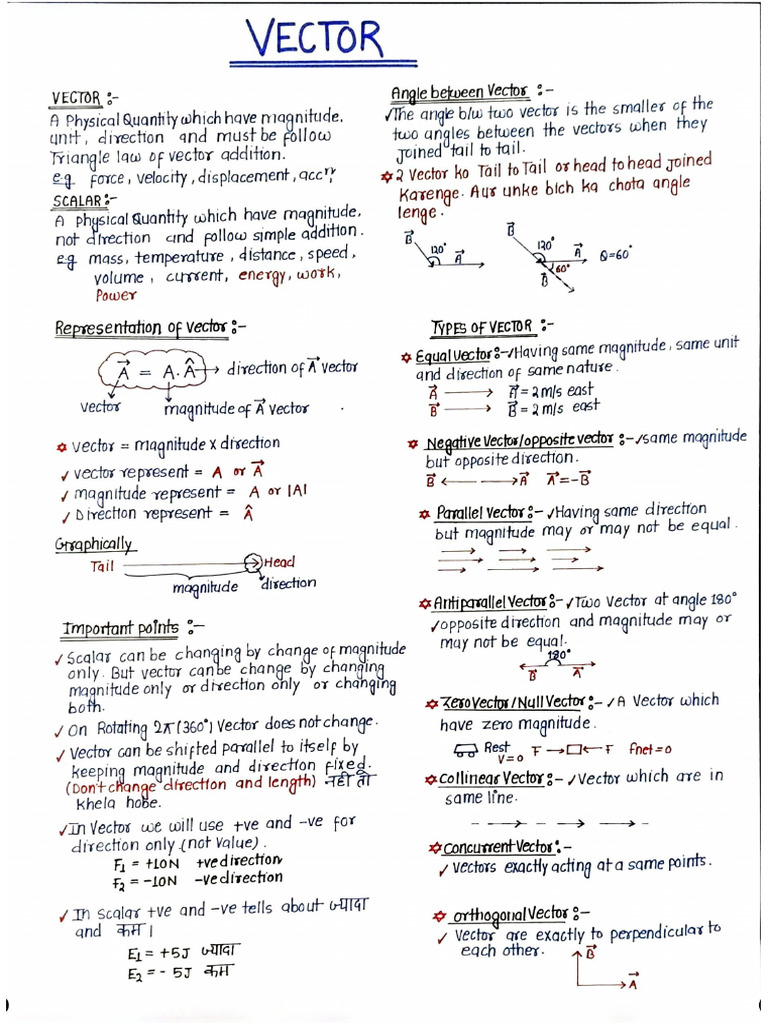 VECTOR
VECTOR :-
A Physical Quantity which have magnitude,
unit, direction and must be follow
Triangle law of vector addition.
e.g. force, velocity, displacement, accⁿ,
SCALAR:-
A physical Quantity which have magnitude,
not direction and follow simple addition.
e.g mass, temperature, distance, speed,
volume, current, energy, work,
Power
Representation of vector:-
A⃗ = A.Â → direction of A⃗ vector
vector magnitude of A⃗ vector
vector = magnitude x direction
✓ vector represent = A or A⃗
✓ magnitude represent = A or |A|
✓ Direction represent = Â
Graphically
Tail Head
magnitude direction
Important points :-
✓ Scalar can be changing by change of magnitude
only. But vector can be change by changing
magnitude only or direction only or changing
both.
✓ On Rotating 2π (360°) Vector does not change.
✓ Vector can be shifted parallel to itself by
keeping magnitude and direction fixed.
(Don't change direction and length) नहीं तो
khela hobe.
✓ In Vector we will use +ve and -ve for
direction only. (not value).
F₁ = +10N +ve direction
F₂ = -10N -ve direction
✓ In scalar +ve and -ve tells about ज्यादा
and कम।
E₁ = +5J ज्यादा
E₂ = - 5J कम
Angle between Vector :-
✓ The angle b/w two vector is the smaller of the
two angles between the vectors when they
joined tail to tail.
2 Vector ko Tail to Tail or head to head joined
Karenge. Aur unke bich ka chota angle
lenge.
B⃗ 120° A⃗ B⃗ 120° A⃗ 60° B⃗ Q=60°
TYPES OF VECTOR :-
Equal vector:- ✓ Having same magnitude, same unit
and direction of same nature.
A⃗ → A⃗ = 2 m/s east
B⃗ → B⃗ = 2 m/s east
Negative vector/opposite vector :- ✓ same magnitude
but opposite direction.
B⃗ ← → A⃗ A⃗ = -B⃗
Parallel vector:- ✓ Having same direction
but magnitude may or may not be equal.
Antiparallel Vector:- ✓ Two Vector at angle 180°
✓ opposite direction and magnitude may or
may not be equal.
180°
B⃗ A⃗
Zero Vector / Null Vector :- ✓ A Vector which
have zero magnitude.
Rest V=0 F → ← F Fnet=0
Collinear Vector:- ✓ Vector which are in
same line.
Concurrent Vector:-
✓ Vectors exactly acting at a same points.
orthogonal Vector :-
✓ Vector are exactly to perpendicular to
each other.
B⃗
A⃗